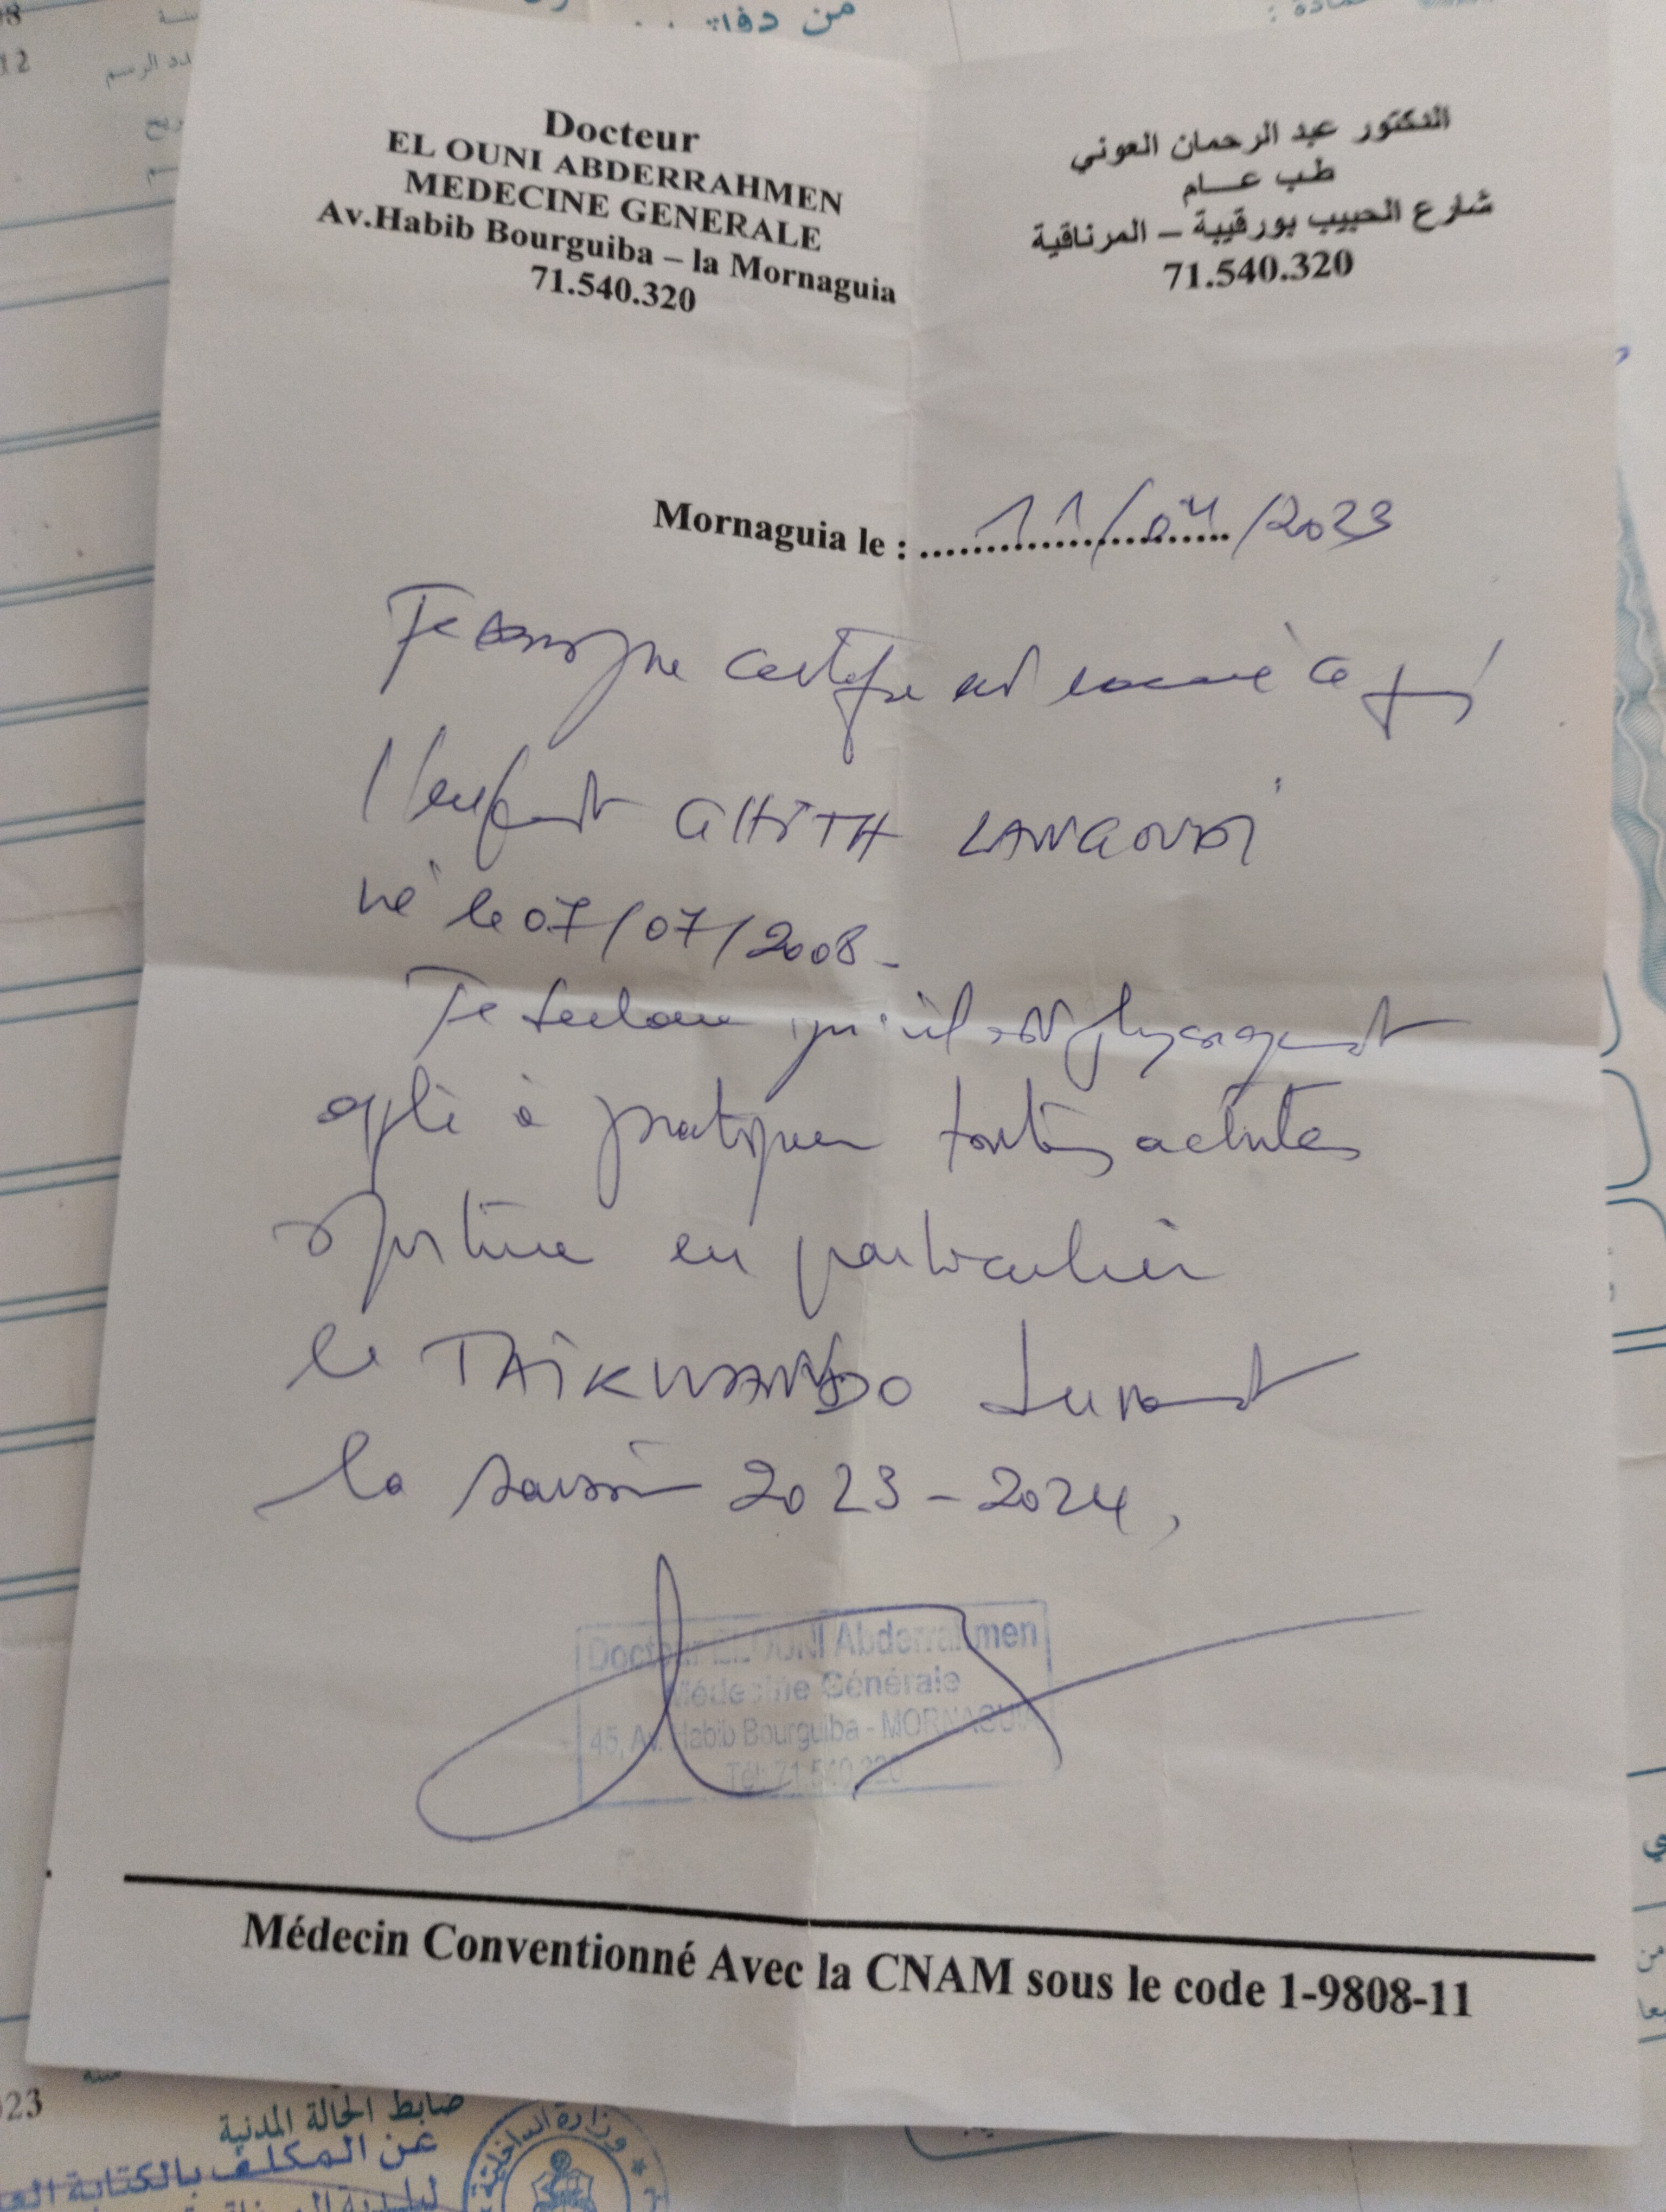 من
12
عدد الرسم
Docteur
EL OUNI ABDERRAHMEN
MEDECINE GENERALE
Av.Habib Bourguiba – la Mornaguia
71.540.320
الدكتور عبد الرحمان العوني
طب عــام
شارع الحبيب بورقيبة – المرناقية
71.540.320
Mornaguia le : ........................ 11/04/2023
Je soussigne certifie avoir examiné ce jour
l'enfant GHITH
né le 07/07/2008 -
Je declare qu'il est physiquement
apte à pratiquer toutes activites
sportive en particulier
le TAIKWANDO durant
la saison 2023-2024,
Docteur EL OUNI Abderrahmen
Médecine Générale
45, Av. Habib Bourguiba - MORNAGUIA
Tél: 71.540.320
Médecin Conventionné Avec la CNAM sous le code 1-9808-11
23
ضابط الحالة المدنية
عن المكلف بالكتابة
وزارة الداخلية